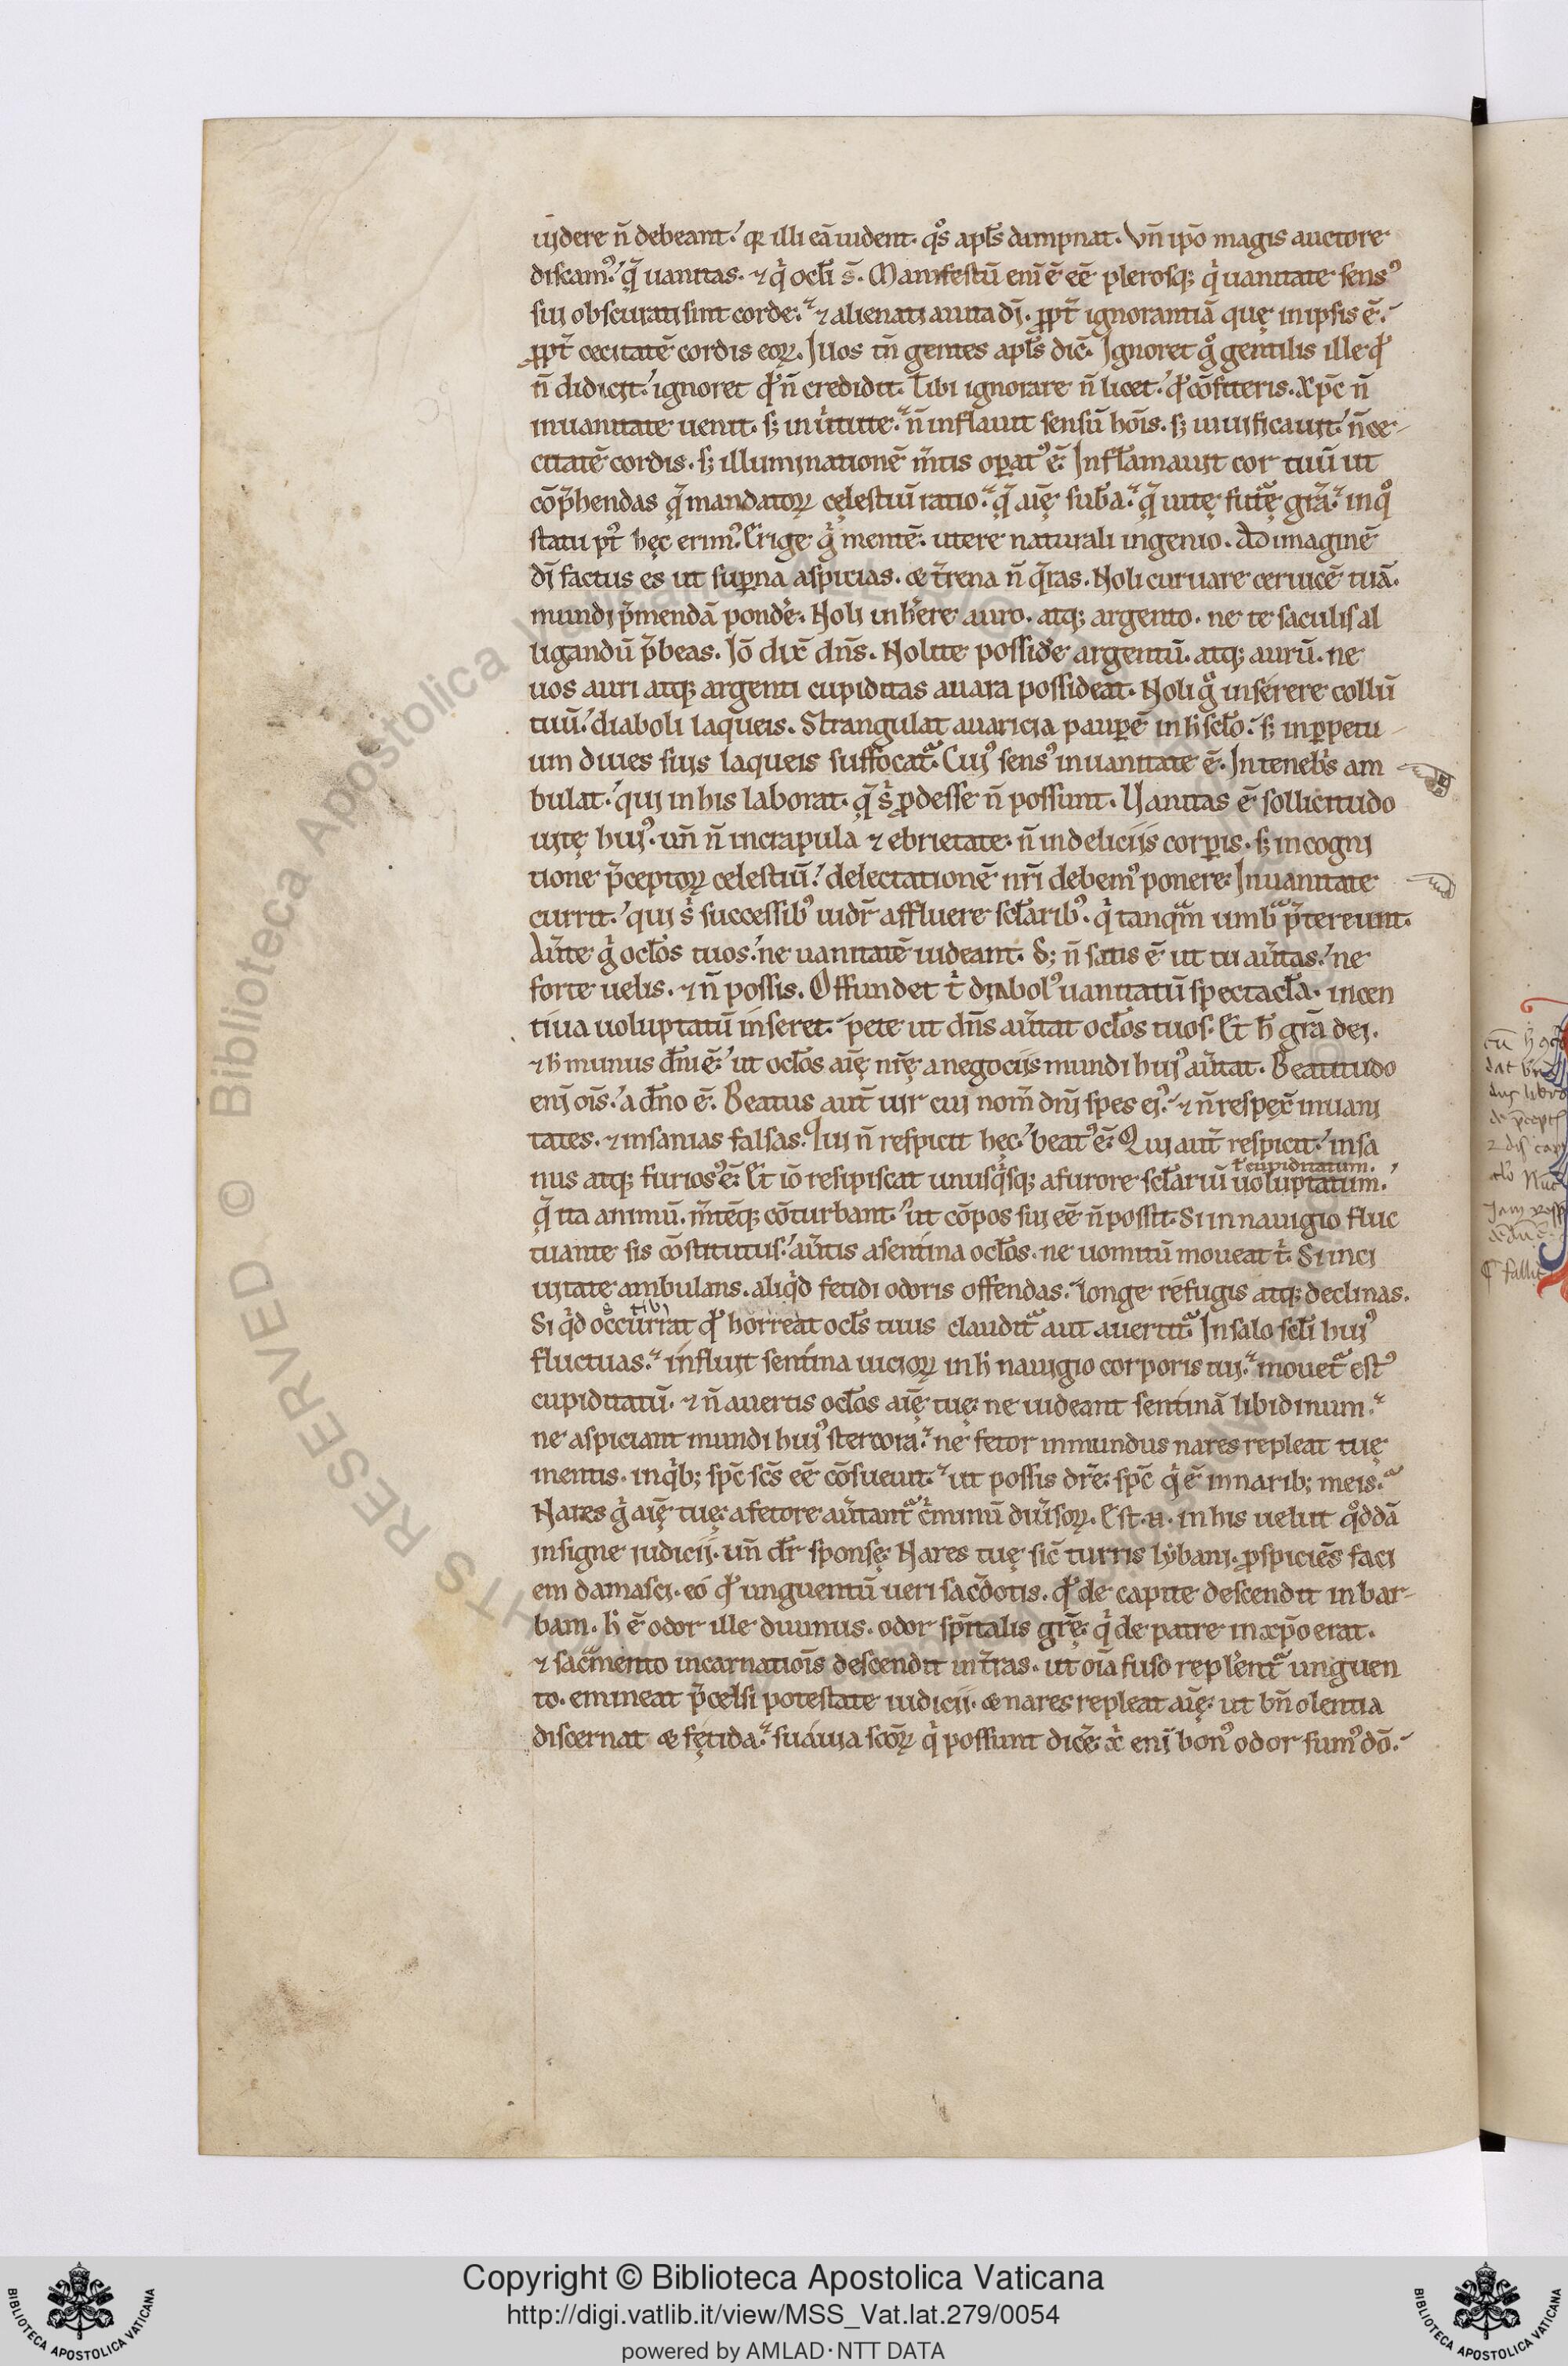 uidere n̄ debeant. qꝛ illi eā uident. qͦs apl̄s dampnat. Vn̄ ip̄o magis auctore
discamꝰ. q̄ uanitas. ⁊ qͥ ocl̄i s̄. Manifestū eni ē eē plerosqꝫ qͥ uanitate sensꝰ
sui obscurati sint corde. ⁊ alienati a uita dī. ꝓpt̄ ignorantiā quę in ipsis ē.
ꝓpt̄ cecitatē cordis eoꝝ. Illos tn̄ gentes apl̄s dic̄. Ignoret gͦ gentilis ille qd̓
n̄ didicit. ignoret qd̓ n̄ credidit. Tibi ignorare n̄ licet. qd̓ cōfiteris. Xp̄c n̄
in uanitate uenit. sꝫ in ūtute. n̄ inflauit sensū hoīs. sꝫ uiuificauit. n̄ ce-
citatē cordis. sꝫ illuminationē m̄tis oꝑatꝰ ē. Inflāmauit cor tuū ut
cōp̄hendas q̄ mandatoꝝ cęlestiū ratio. q̄ aīę sub̄a. q̄ uitę fut̄ę gr̄a. in qͦ
statu pꝰ hęc erimꝰ. Erige gͦ mentē. utere naturali ingenio. Ad imaginē
dī factus es ut suꝑna aspicias. & t̄rena n̄ q̄ras. Noli curuare ceruicē tuā.
mundi p̄mendā pond̓e. Noli inh̓ere auro. atqꝫ argento. ne te saculis al
ligandū p̄beas. Iō dix̄ dn̄s. Nolite possid̓e argentū. atqꝫ aurū. ne
uos auri atqꝫ argenti cupiditas auara possideat. Noli gͦ inserere collū
tuū. diaboli laqueis. Strangulat auaricia pauꝑē in h̄ scl̄o. sꝫ in ꝑpetu-
um diues suis laqueis suffocat̄. Cuiꝰ sensꝰ in uanitate ē. In teneb̓s am
bulat. qui in his laborat. q̄ sͥ ꝓdesse n̄ possunt. Vanitas ē sollicitudo
uitę huiꝰ. un̄ n̄ in crapula ⁊ ebrietate. n̄ in deliciis corꝑis. sꝫ in cogni
tione p̄ceptoꝝ celestiū. delectationē nr̄i debemꝰ ponere. In uanitate
currit. qui sͥ successibꝰ uidr̄ affluere scl̄aribꝰ. qͥ tanqᷓm umbᷓ p̄tereunt.
Au̓te gͦ ocl̄os tuos. ne uanitatē uideant. Sꝫ n̄ satis ē ut tu au̓tas. ne
forte uelis. ⁊ n̄ possis. Offundet tͥ diabolꝰ uanitatū spectacl̄a. incen
tiua uoluptatū inseret. pete ut dn̄s au̓tat ocl̄os tuos. Et h̄ gr̄a dei.
⁊ h̄ munus dn̄i ē. ut ocl̄os aīę nr̄ę a negociis mundi huiꝰ au̓tat. Beatitudo
eni oīs. a dn̄o ē. Beatus aut̄ uir cui nom̄ dn̄i spes eiꝰ. ⁊ n̄ respex̄ in uani
tates. ⁊ insanias falsas. Qui n̄ respicit hęc. beatꝰ ē. Qui aut̄ respicit. insa
nus atqꝫ furiosꝰ ē. Et iō resipiscat unusqͥsqꝫ a furore scl̄ariū uoluptatum.
ł cupiditatum.
q̄ ita animū. m̄tēqꝫ cōturbant. ut cōpos sui eē n̄ possit. Si in nauigio fluc
tuante sis cōstitutus. au̓tis a sentina ocl̄os. ne uomitū moueat tͥ. Si in ci
uitate ambulans. aliqͥd fetidi odoris offendas. longe refugis atqꝫ declinas.
Si qͥd occurrat qd̓ horreat ocl̄s tuus claudit̄ aut auertit̄. In salo scl̄i huiꝰ
fluctuas. influit sentina uicioꝝ in h̄ nauigio corporis tui. mouet̄ estꝰ
cupiditatū. ⁊ n̄ auertis ocl̄os aīę tuę. ne uideant sentinā libidinum.
ne aspiciant mundi huiꝰ stercora. ne fetor inmundus nares repleat tuę
mentis. in qͥbꝫ sp̄c sc̄s eē cōsueuit. ut possis dr̄e. sp̄c qͥ ē in naribꝫ meis.
Nares gͦ aīę tuę a fetore au̓tant̄ cͥminū diu̓soꝝ. Est .n. in his uelut qͦddā
insigne iudicii. un̄ dr̄ sponsę. Nares tuę sic̄ turris lybani. ꝓspiciēs faci
em damasci. eo qd̓ unguentū ueri sacd̓otis. qd̓ de capite descendit in bar-
bam. h̄ ē odor ille diuinus. odor sp̄italis gr̄ę. qͥ de patre in xp̄o erat.
⁊ sacᷓmento incarnatiōis descendit in t̄ras. ut oīa fuso repl̓ent̄ unguen
to. emineat p̄celsi potestate iudicii. & nares repleat aīę. ut bn̄ olentia
discernat & fętida. suauia sc̄oꝝ qͥ possunt dic̓e. xͥ eni bonꝰ odor sumꝰ dō.
Copyright © Biblioteca Apostolica Vaticana
http://digi.vatlib.it/view/MSS_Vat.lat.279/0054
powered by AMLAD·NTT DATA